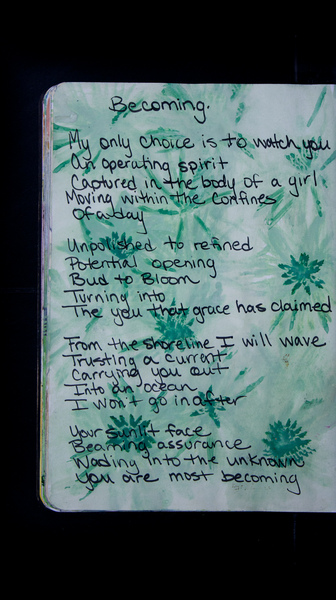 Becoming.
My only choice is to watch you
An operating spirit
Captured in the body of a girl
Moving within the confines
Of a day
Unpolished to refined
Potential opening
Bud to Bloom
Turning into
The you that grace has claimed
From the shoreline I will wave
Trusting a current
Carrying you out
Into an ocean
I won't go in after
Your sunlit face
Beaming assurance
Wading into the unknown
You are most becoming